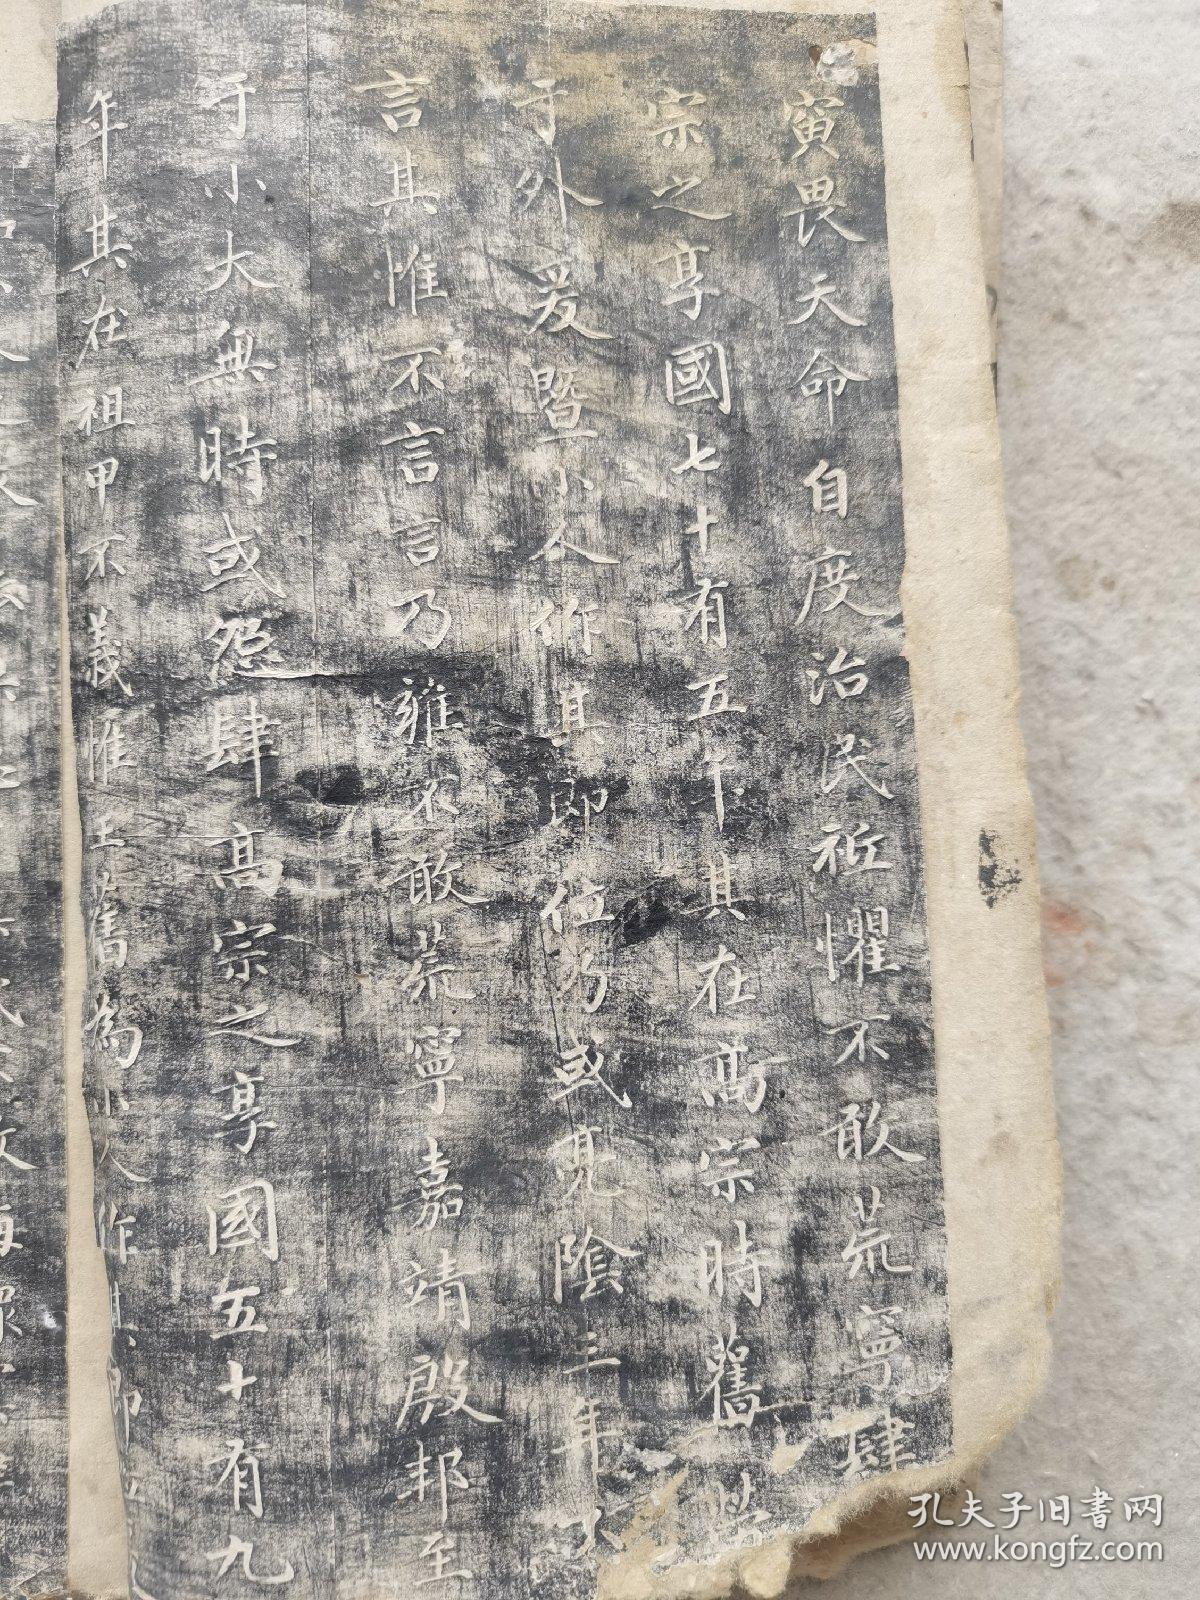 寅畏天命自度治民祗懼不敢荒寧肆
宗之享國七十有五年其在高宗時舊勞
于外爰暨小人作其即位乃或亮陰三年不
言其惟不言言乃雍不敢荒寧嘉靖殷邦至
于小大無時或怨肆高宗之享國五十有九
年其在祖甲不義惟王舊為小人作其即位
孔夫子旧书网
www.kongfz.com